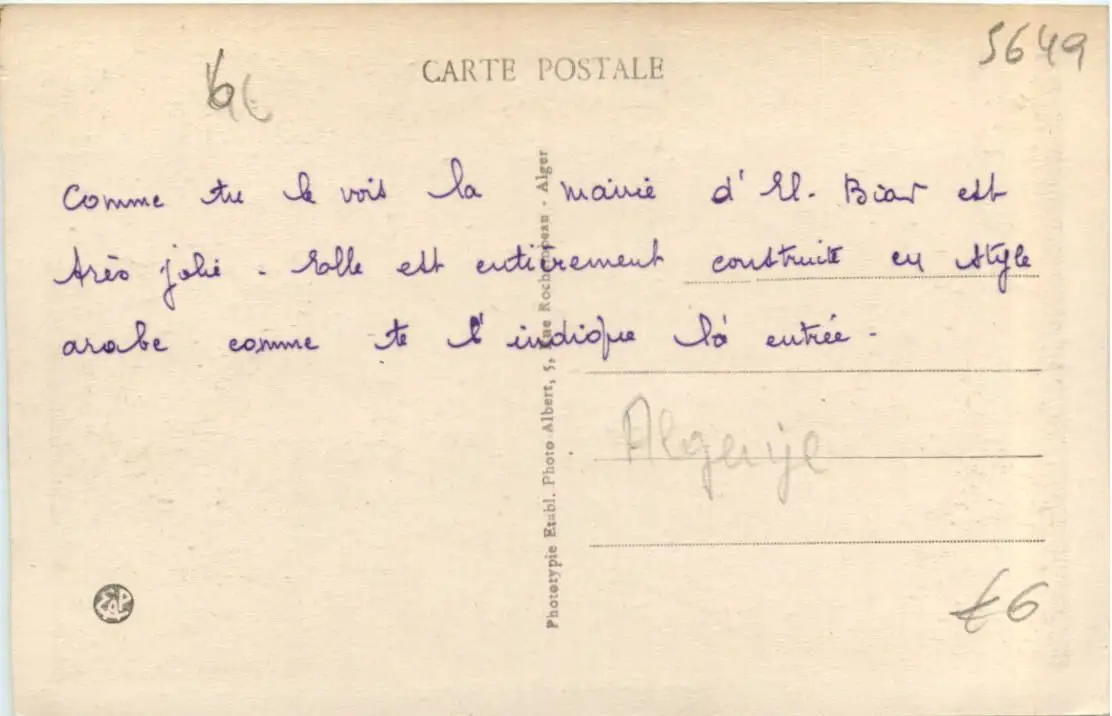 5649
CARTE POSTALE
Comme tu le vois la mairie d'El-Biar est
très jolie - Elle est entièrement construite en style
arabe comme te l'indique la entrée -
Phototypie Etabl. Photo Albert, 5, Rue Rochambeau - Alger
Algerije
€6